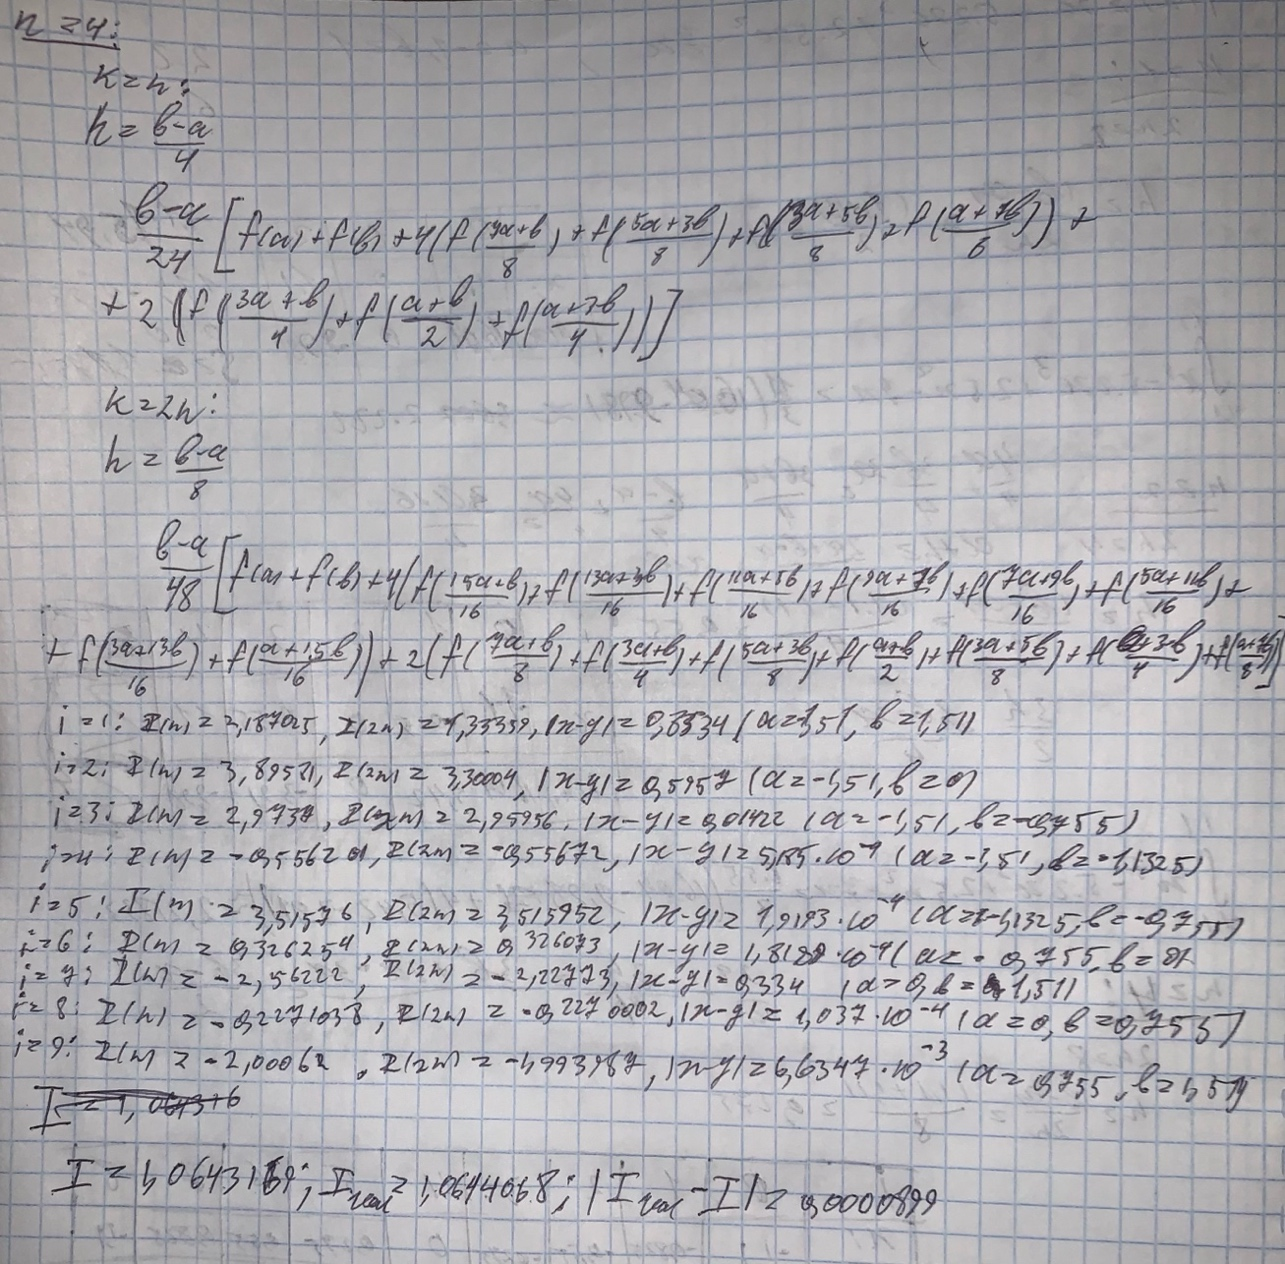 n = 4:
k = n:
h = (b-a)/4
(b-a)/24 [f(a) + f(b) + 4(f((7a+b)/8) + f((5a+3b)/8) + f((3a+5b)/8) + f((a+7b)/6)) +
+ 2(f((3a+b)/4) + f((a+b)/2) + f((a+3b)/4))]
k = 2n:
h = (b-a)/8
(b-a)/48 [f(a) + f(b) + 4(f((15a+b)/16) + f((13a+3b)/16) + f((11a+5b)/16) + f((9a+7b)/16) + f((7a+9b)/16) + f((5a+11b)/16) +
+ f((3a+13b)/16) + f((a+15b)/16)) + 2(f((7a+b)/8) + f((3a+b)/4) + f((5a+3b)/8) + f((a+b)/2) + f((3a+5b)/8) + f((a+3b)/4) + f((a+7b)/8))]
i=1: I(n) = , I(2n) = 1,33359, |x-y| = 0,8534 (a = , b = 1,51)
i=2: I(n) = 3,89521, I(2n) = 3,30004, |x-y| = 0,5957 (a = -1,51, b = 0)
i=3: I(n) = 2,9737, I(2n) = 2,95956, |x-y| = 0,01422 (a = -1,51, b = -0,755)
i=4: I(n) = , I(2n) = -0,55672, |x-y| = (a = -1,51, b = -1,1325)
i=5: I(n) = 3,51576, I(2n) = 3,515952, |x-y| = 1,9193·10⁻⁴ (a = -1,1325, b = -0,755)
i=6: I(n) = 0,326254, I(2n) = 0,326073, |x-y| = (a = -0,755, b = 0)
i=7: I(n) = -2,56222, I(2n) = -2,22773, |x-y| = 0,334 (a = 0, b = 1,51)
i=8: I(n) = -0,2271038, I(2n) = -0,2270002, |x-y| = 1,037·10⁻⁴ (a = 0, b = 0,755)
i=9: I(n) = -2,00062, I(2n) = -1,993987, |x-y| = 6,6347·10⁻³ (a = 0,755, b = 1,51)
I = ; I = 1,0644068; |I - I| = 0,0000899